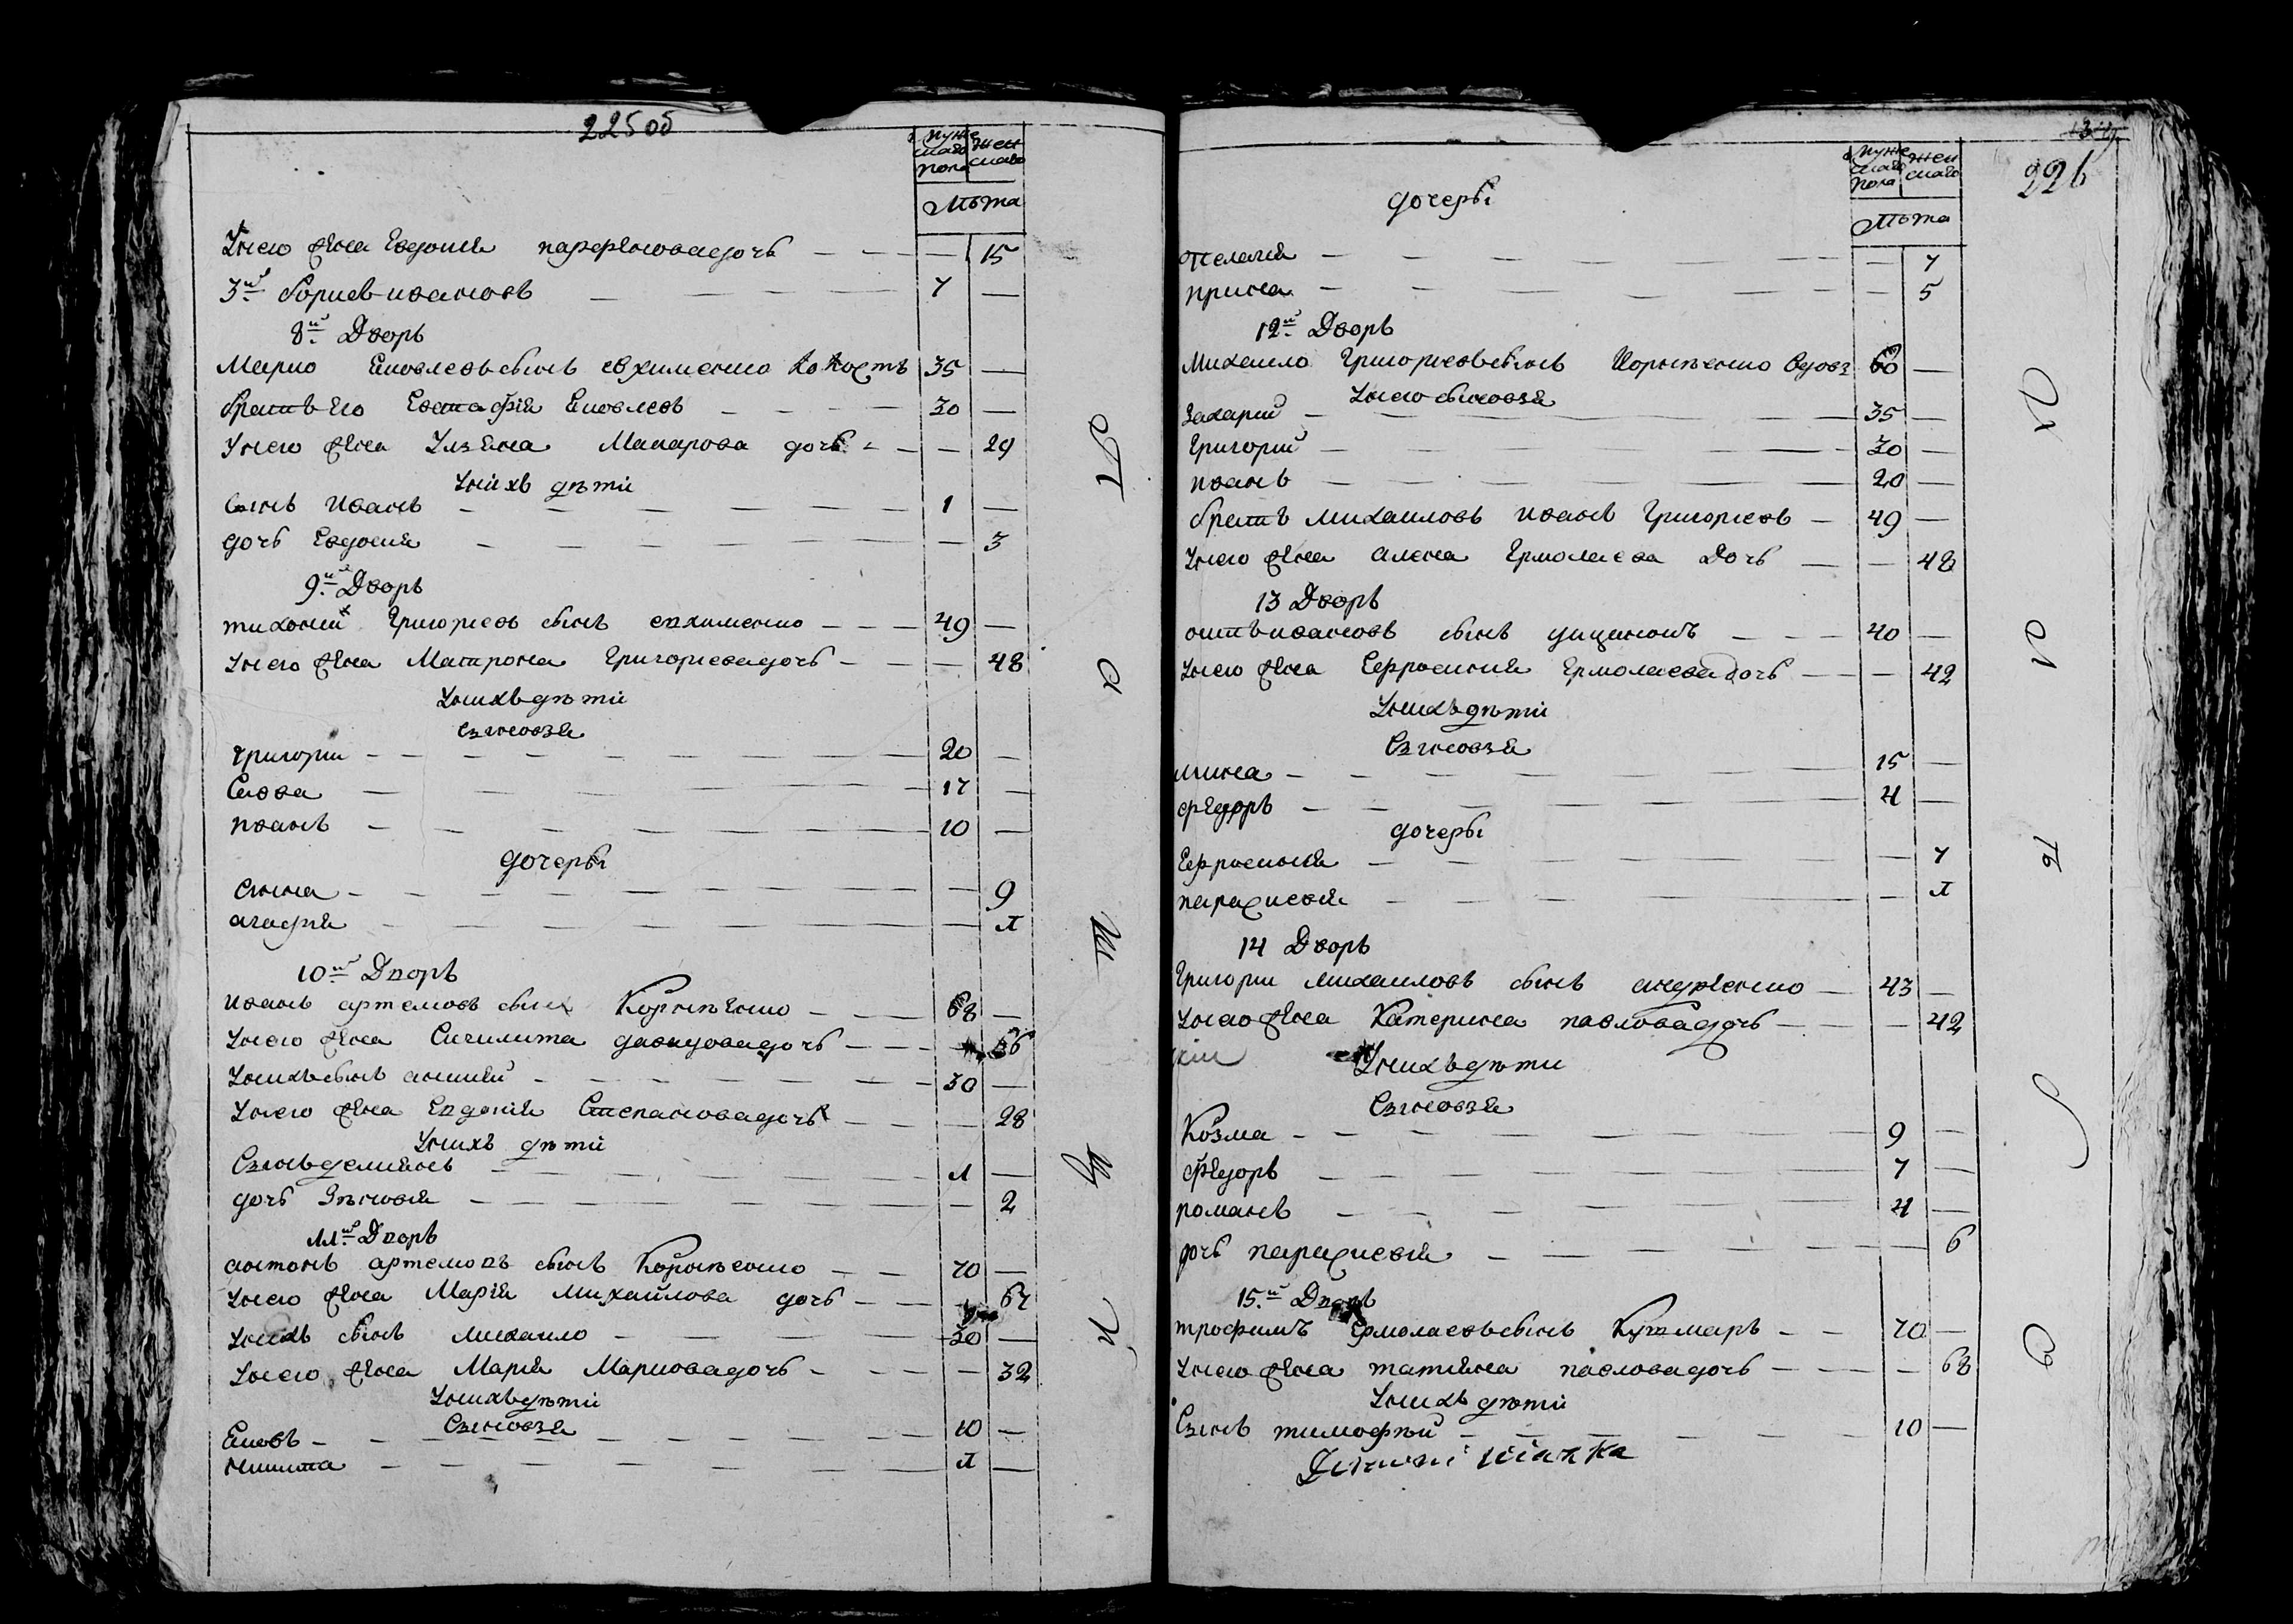 225 об
мужескаго пола
женскаго
лѣта
У него жена Евдокия парфенова дочь — — — 15
3й борисъ ивановъ — — — — 7 —
8й Дворъ
Марко Яковлевъ сынъ евхименко холостъ 35 —
братъ его Евстафій Яковлевъ — — — — 30 —
У него жена Ульяна Макарова дочь — — — 29
У нихъ дѣти
сынъ иванъ — — — — — 1 —
дочь Евдокия — — — — — — 3
9й Дворъ
тихоний Григориевъ сынъ евхименко — — — 49 —
У него жена Матрона Григориева дочь — — — 48
У нихъ дѣти
Сыновья
Григори — — — — — — — 20 —
Савва — — — — — 17 —
иванъ — — — — — — 10 —
дочеры
анна — — — — — — — — 9
агафия — — — — — — — 4
10й Дворъ
иванъ артемовъ сынъ Корниенко — — — 68 —
У него жена давидова дочь — — — — 56
У нихъ сынъ — — — — — — 30 —
У него жена Евдокия Степанова дочь — — — 28
У нихъ дѣти
Сынъ демиянъ — — — — — 4 —
дочь Зѣновия — — — — — — — 2
11й Дворъ
антонъ артемовъ сынъ Корниенко — — 70 —
У него жена Мария Михайлова дочь — — — 67
У нихъ сынъ михаило — — — — 30 —
У него жена Мария Маркова дочь — — — — 32
У нихъ дѣти
Сыновья
Яковъ — — — — — — — 10 —
никита — — — — — — 4 —
226
мужескаго пола
женскаго
лѣта
дочеры
пелагия — — — — — — — 7
ирина — — — — — — — — 5
12й Дворъ
Михаило Григориевъ сынъ Корниенко вдовъ 60 —
У него сыновья
Захарий — — — 35 —
Григорий — — — — — 30 —
иванъ — — — — — 20 —
братъ михаиловъ иванъ Григориевъ — 49 —
У него жена алена Ермолаева Дочь — — 48
13 Дворъ
ивановъ сынъ — — — 40 —
У него жена Ефросиния Ермолаева дочь — — — 42
У нихъ дѣти
Сыновья
мина — — — — — — 15 —
федоръ — — — — — 4 —
дочеры
Ефросиния — — — — — — 7
параскевия — — — — — — 4
14 Дворъ
Григори михаиловъ сынъ андреенко — 43 —
У него жена Катерина павлова дочь — — — 42
У нихъ дѣти
Сыновья
Козма — — — — — — 9 —
Федоръ — — — — — 7 —
романъ — — — — — 4 —
дочь параскевия — — — — — — 6
15й Дворъ
трофимъ Ермолаевъ сынъ — — 70 —
У него жена татияна павлова дочь — — — — 68
У нихъ дѣти
Сынъ тимофѣй — — — — — 10 —